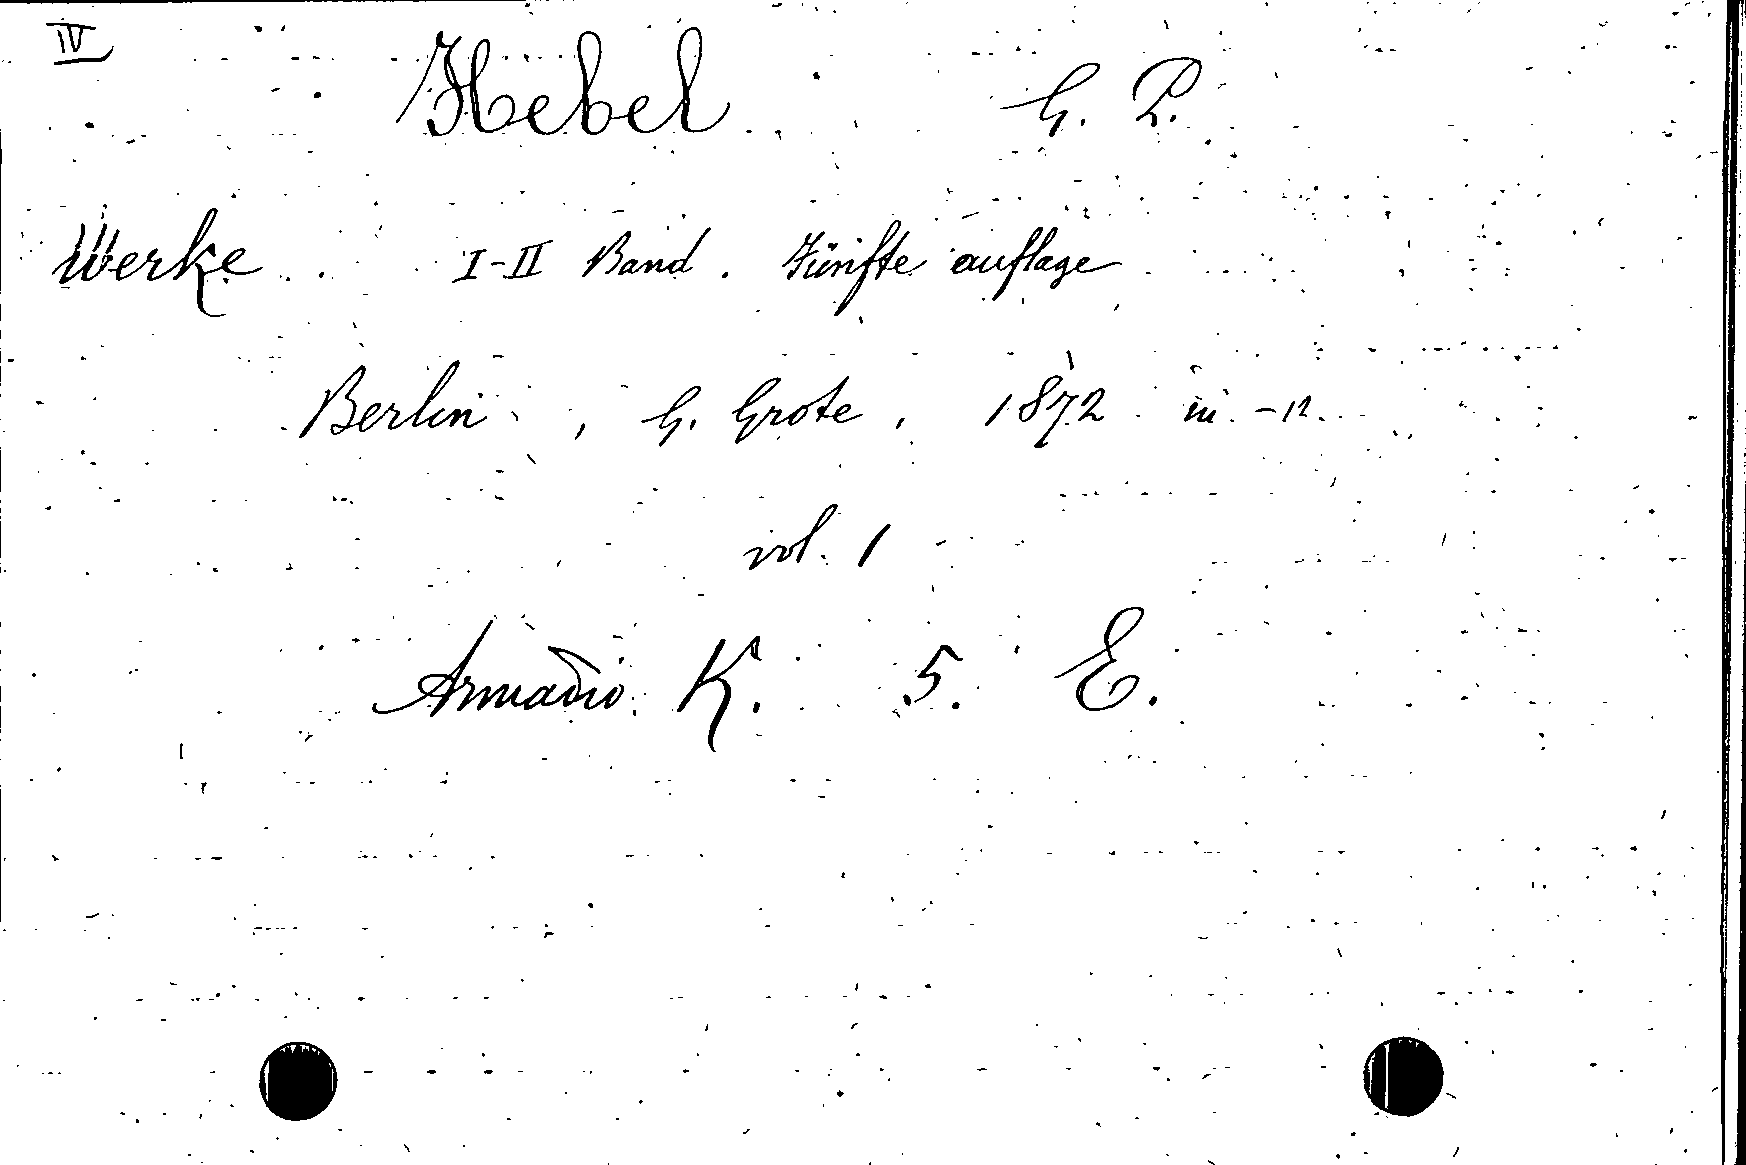 IV
Hebel G. P.
Werke I-II Band. Fünfte auflage
Berlin, G. Grote, 1872 in -12.
vol. 1
Armadio K. 5. E.